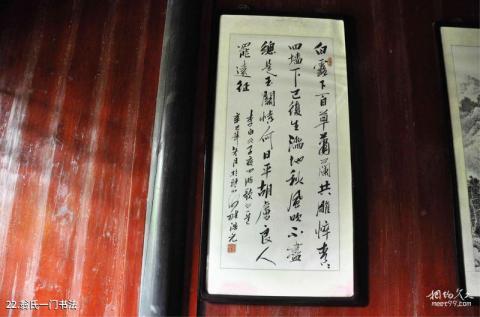 白露下百草蕭蘭共雕悴青青
四墻下已復生滿地秋風吹不盡
總是玉關情何日平胡虜良人
罷遠征
李白 子夜四時歌
22.翁氏一门书法
相约久久
meet99.com